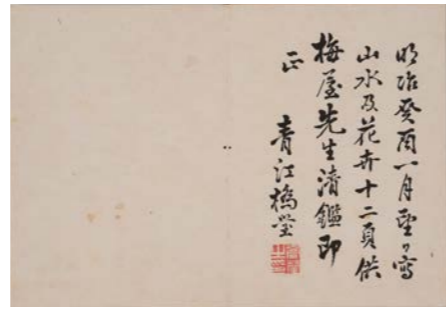 明治癸酉八月望日寫
山水及花卉十二頁供
梅屋先生清鑑即
正　青江橋瑩